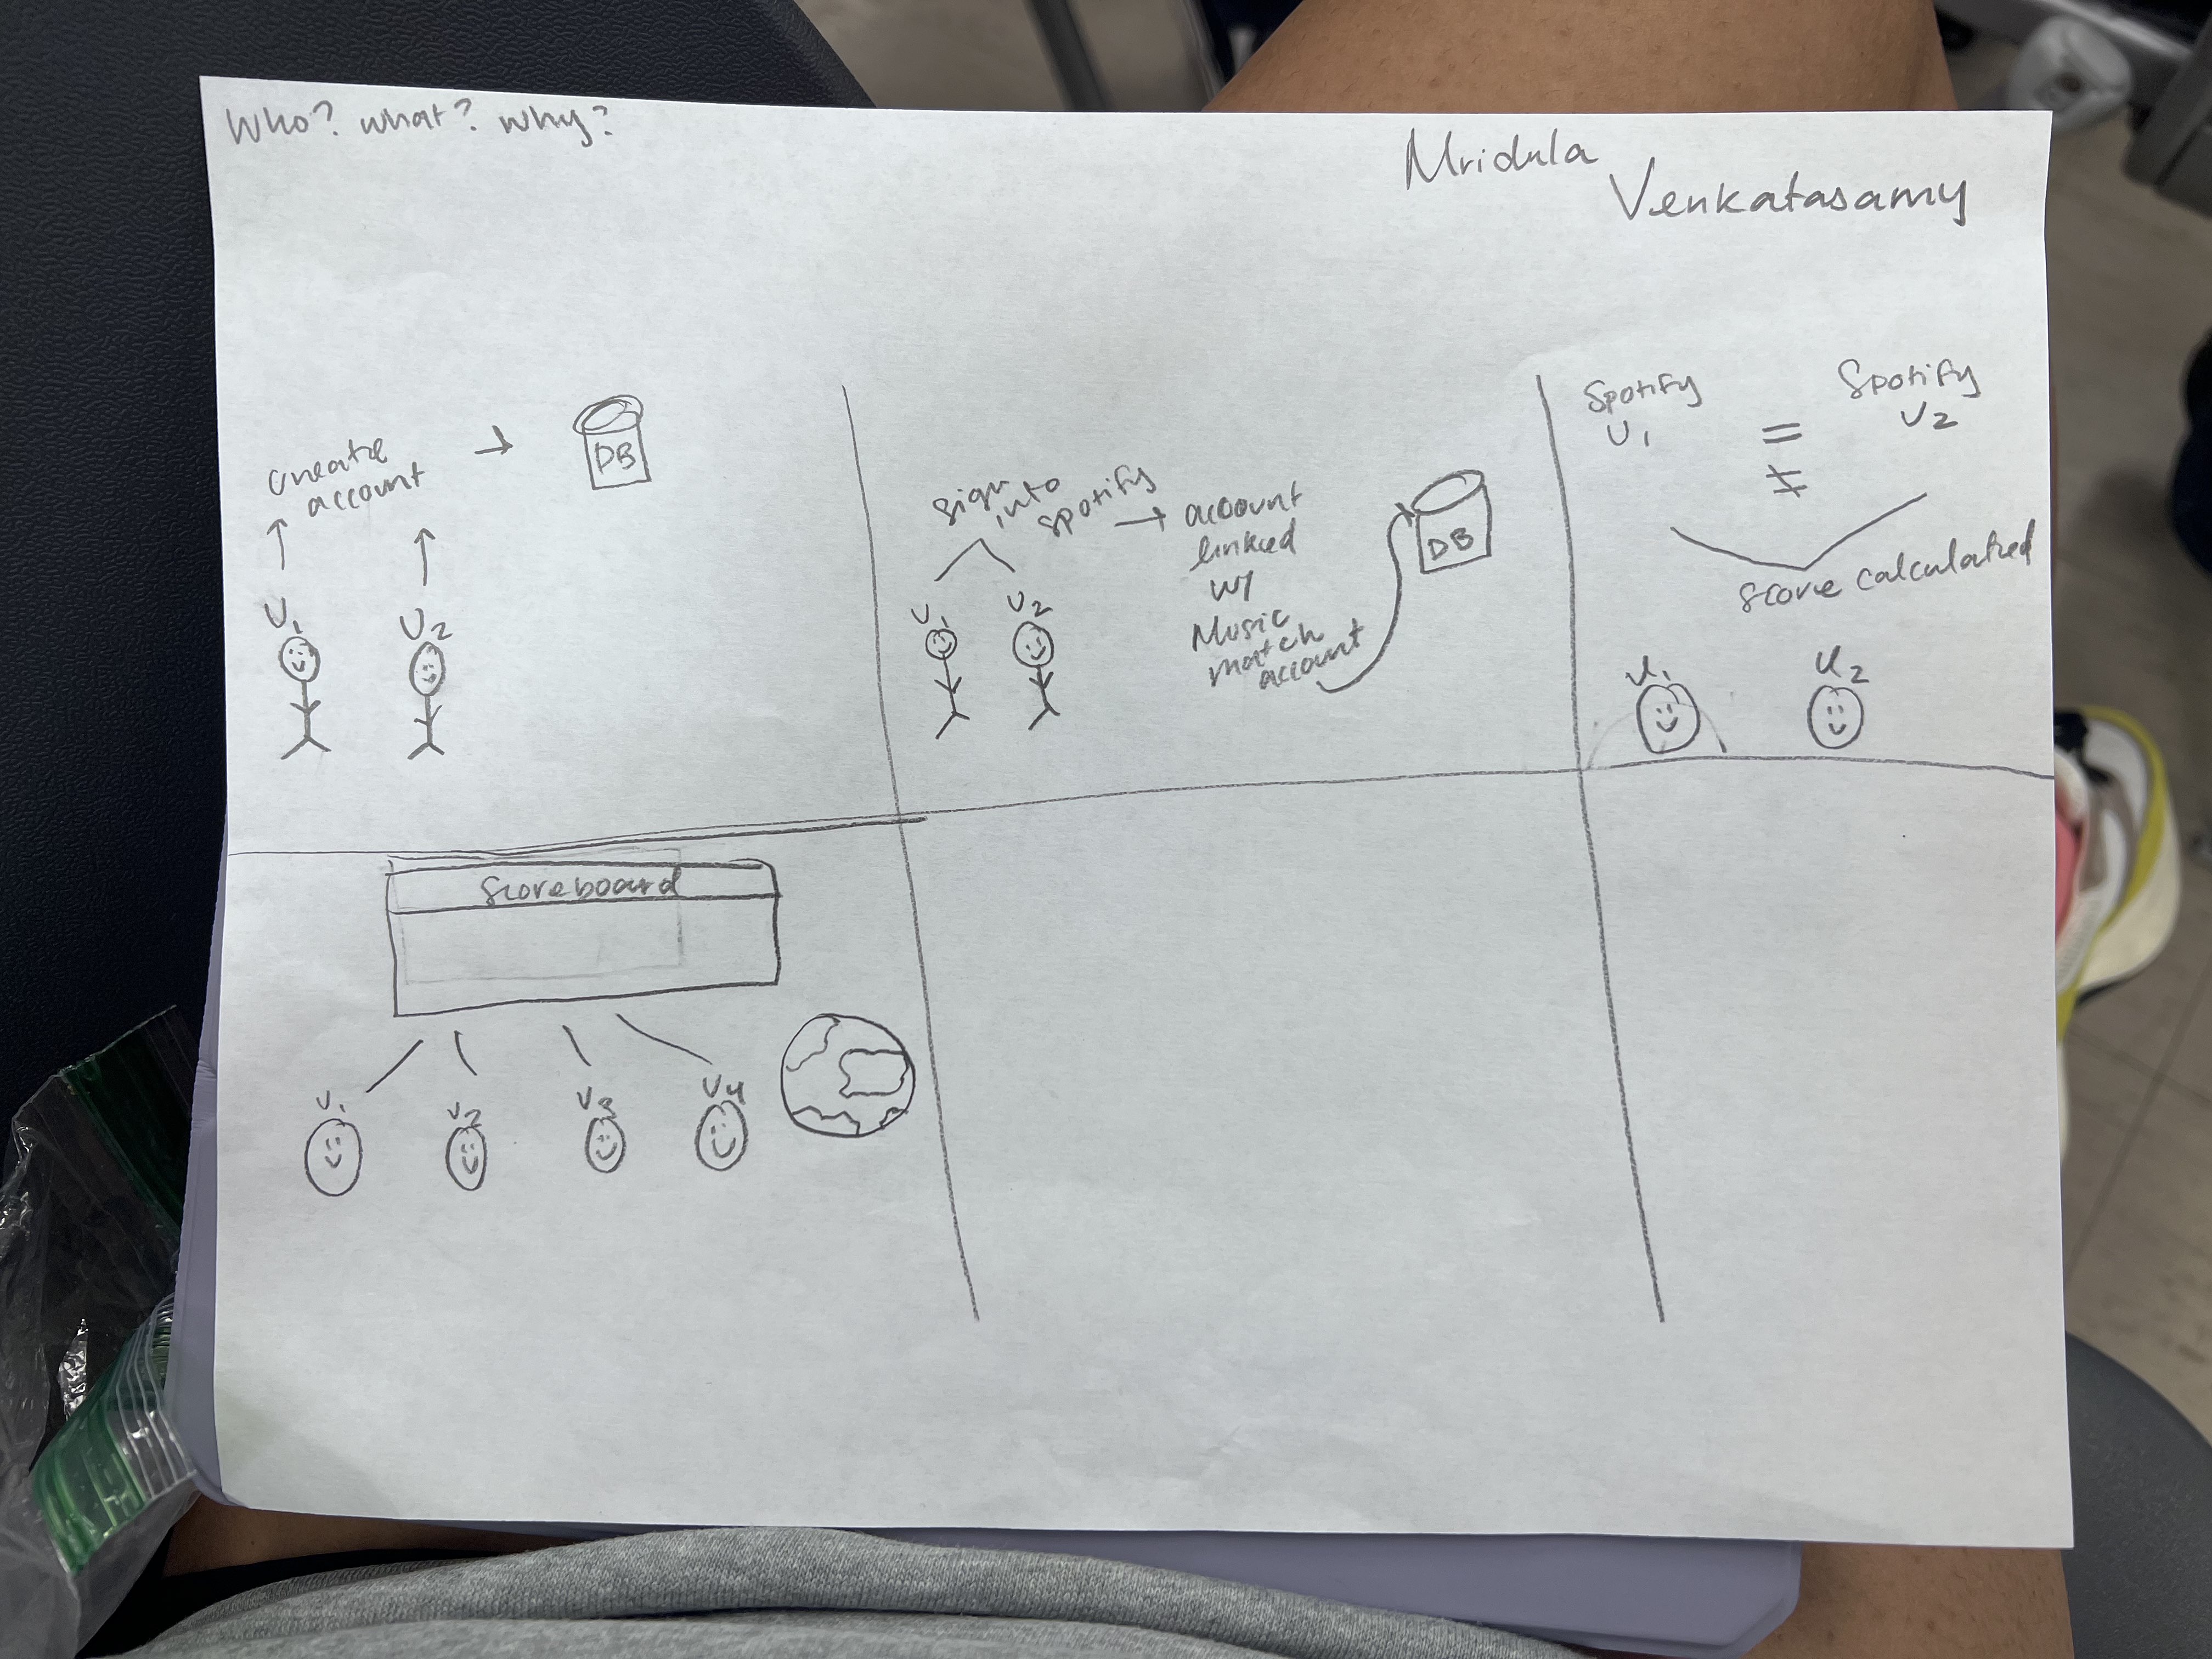 Who? what? why?
Mridula
Venkatasamy
create
account
→
DB
U1
U2
sign
into
spotify
→ account
linked
w/
Music
match
account
DB
U1
U2
Spotify
U1
=
≠
Spotify
U2
score calculated
U1
U2
Scoreboard
U1
U2
U3
U4